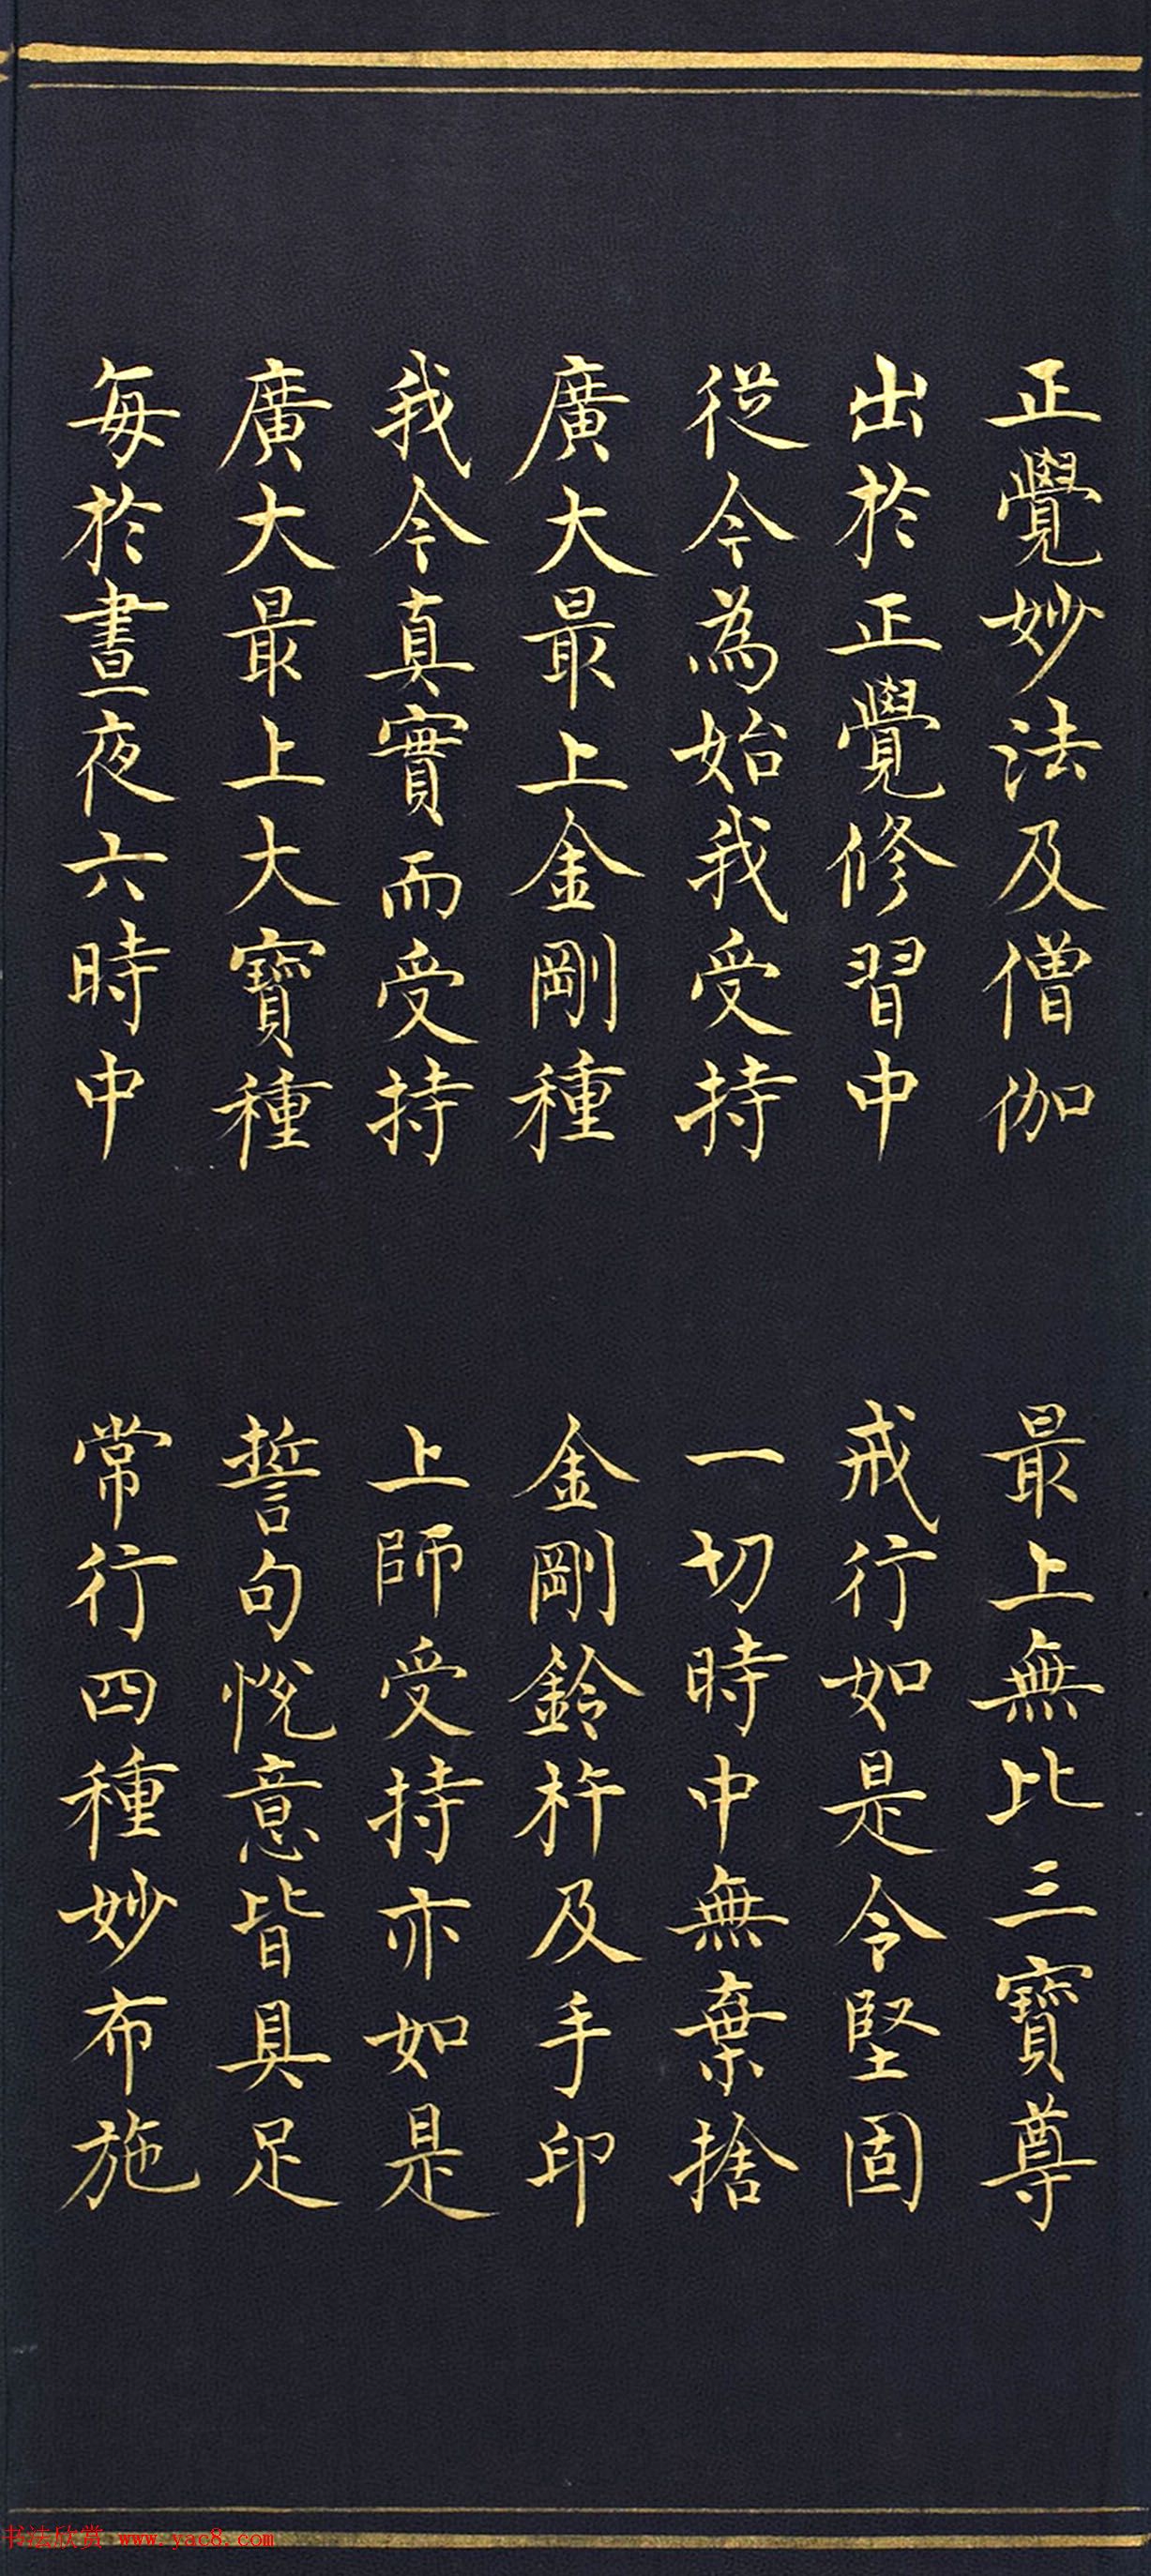 正覺妙法及僧伽 最上無比三寶尊
出於正覺修習中 戒行如是令堅固
從今為始我受持 一切時中無棄捨
廣大最上金剛種 金剛鈴杵及手印
我今真實而受持 上師受持亦如是
廣大最上大寶種 誓句悅意皆具足
每於晝夜六時中 常行四種妙布施
书法欣赏 www.yac8.com